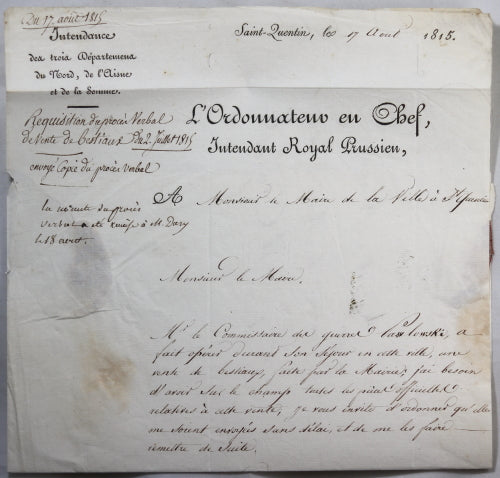 Du 17. août 1815
Intendance
des trois Départemens
du Nord, de l'Aisne
et de la Somme.
Saint-Quentin, le 17 Aout 1815.
Requisition du procès Verbal
de Vente de bestiaux Du 2. Juillet 1815
envoyé Copie du procès verbal
L'Ordonnateur en Chef,
Intendant Royal Prussien,
la minute du procès
verbal a été remise à M. Dary
le 18 aout.
A Monsieur le Maire de la Ville à St Quentin
Monsieur le Maire.
Mr. le Commissaire des guerres Pawlowski, a
fait opérer durant son Séjour en cette ville, une
vente de bestiaux, faite par la Mairie; j'ai besoin
d'avoir sur le champ toutes les pièces officielles
relatives à cette vente; je vous invite d'ordonner qu'elles
me soient envoyés sans délai, et de me les faire
remettre de Suite.